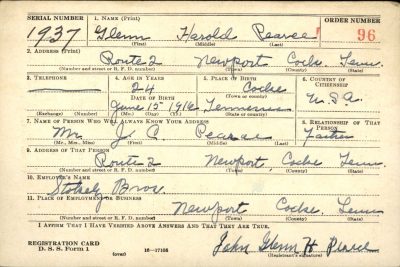 SERIAL NUMBER 1. NAME (Print) ORDER NUMBER
1937 Glenn Harold Pearce 96
(First) (Middle) (Last)
2. ADDRESS (Print)
Route 2 Newport Cocke Tenn.
(Number and street or R. F. D. number) (Town) (County) (State)
3. TELEPHONE 4. AGE IN YEARS 5. PLACE OF BIRTH 6. COUNTRY OF CITIZENSHIP
24 Cocke
DATE OF BIRTH (Town or county)
June 15 1916 Tennessee U.S.A.
(Exchange) (Number) (Mo.) (Day) (Yr.) (State or country)
7. NAME OF PERSON WHO WILL ALWAYS KNOW YOUR ADDRESS 8. RELATIONSHIP OF THAT PERSON
Mr. J. C. Pearce Father
(Mr., Mrs., Miss) (First) (Middle) (Last)
9. ADDRESS OF THAT PERSON
Route 2 Newport, Cocke Tenn.
(Number and street or R. F. D. number) (Town) (County) (State)
10. EMPLOYER'S NAME
Stokely Bros.
11. PLACE OF EMPLOYMENT OR BUSINESS
Newport Cocke Tenn
(Number and street or R. F. D. number) (Town) (County) (State)
I AFFIRM THAT I HAVE VERIFIED ABOVE ANSWERS AND THAT THEY ARE TRUE.
REGISTRATION CARD
D. S. S. Form 1 (over) 16-17105 John Glenn H. Pearce
(Registrant's signature)